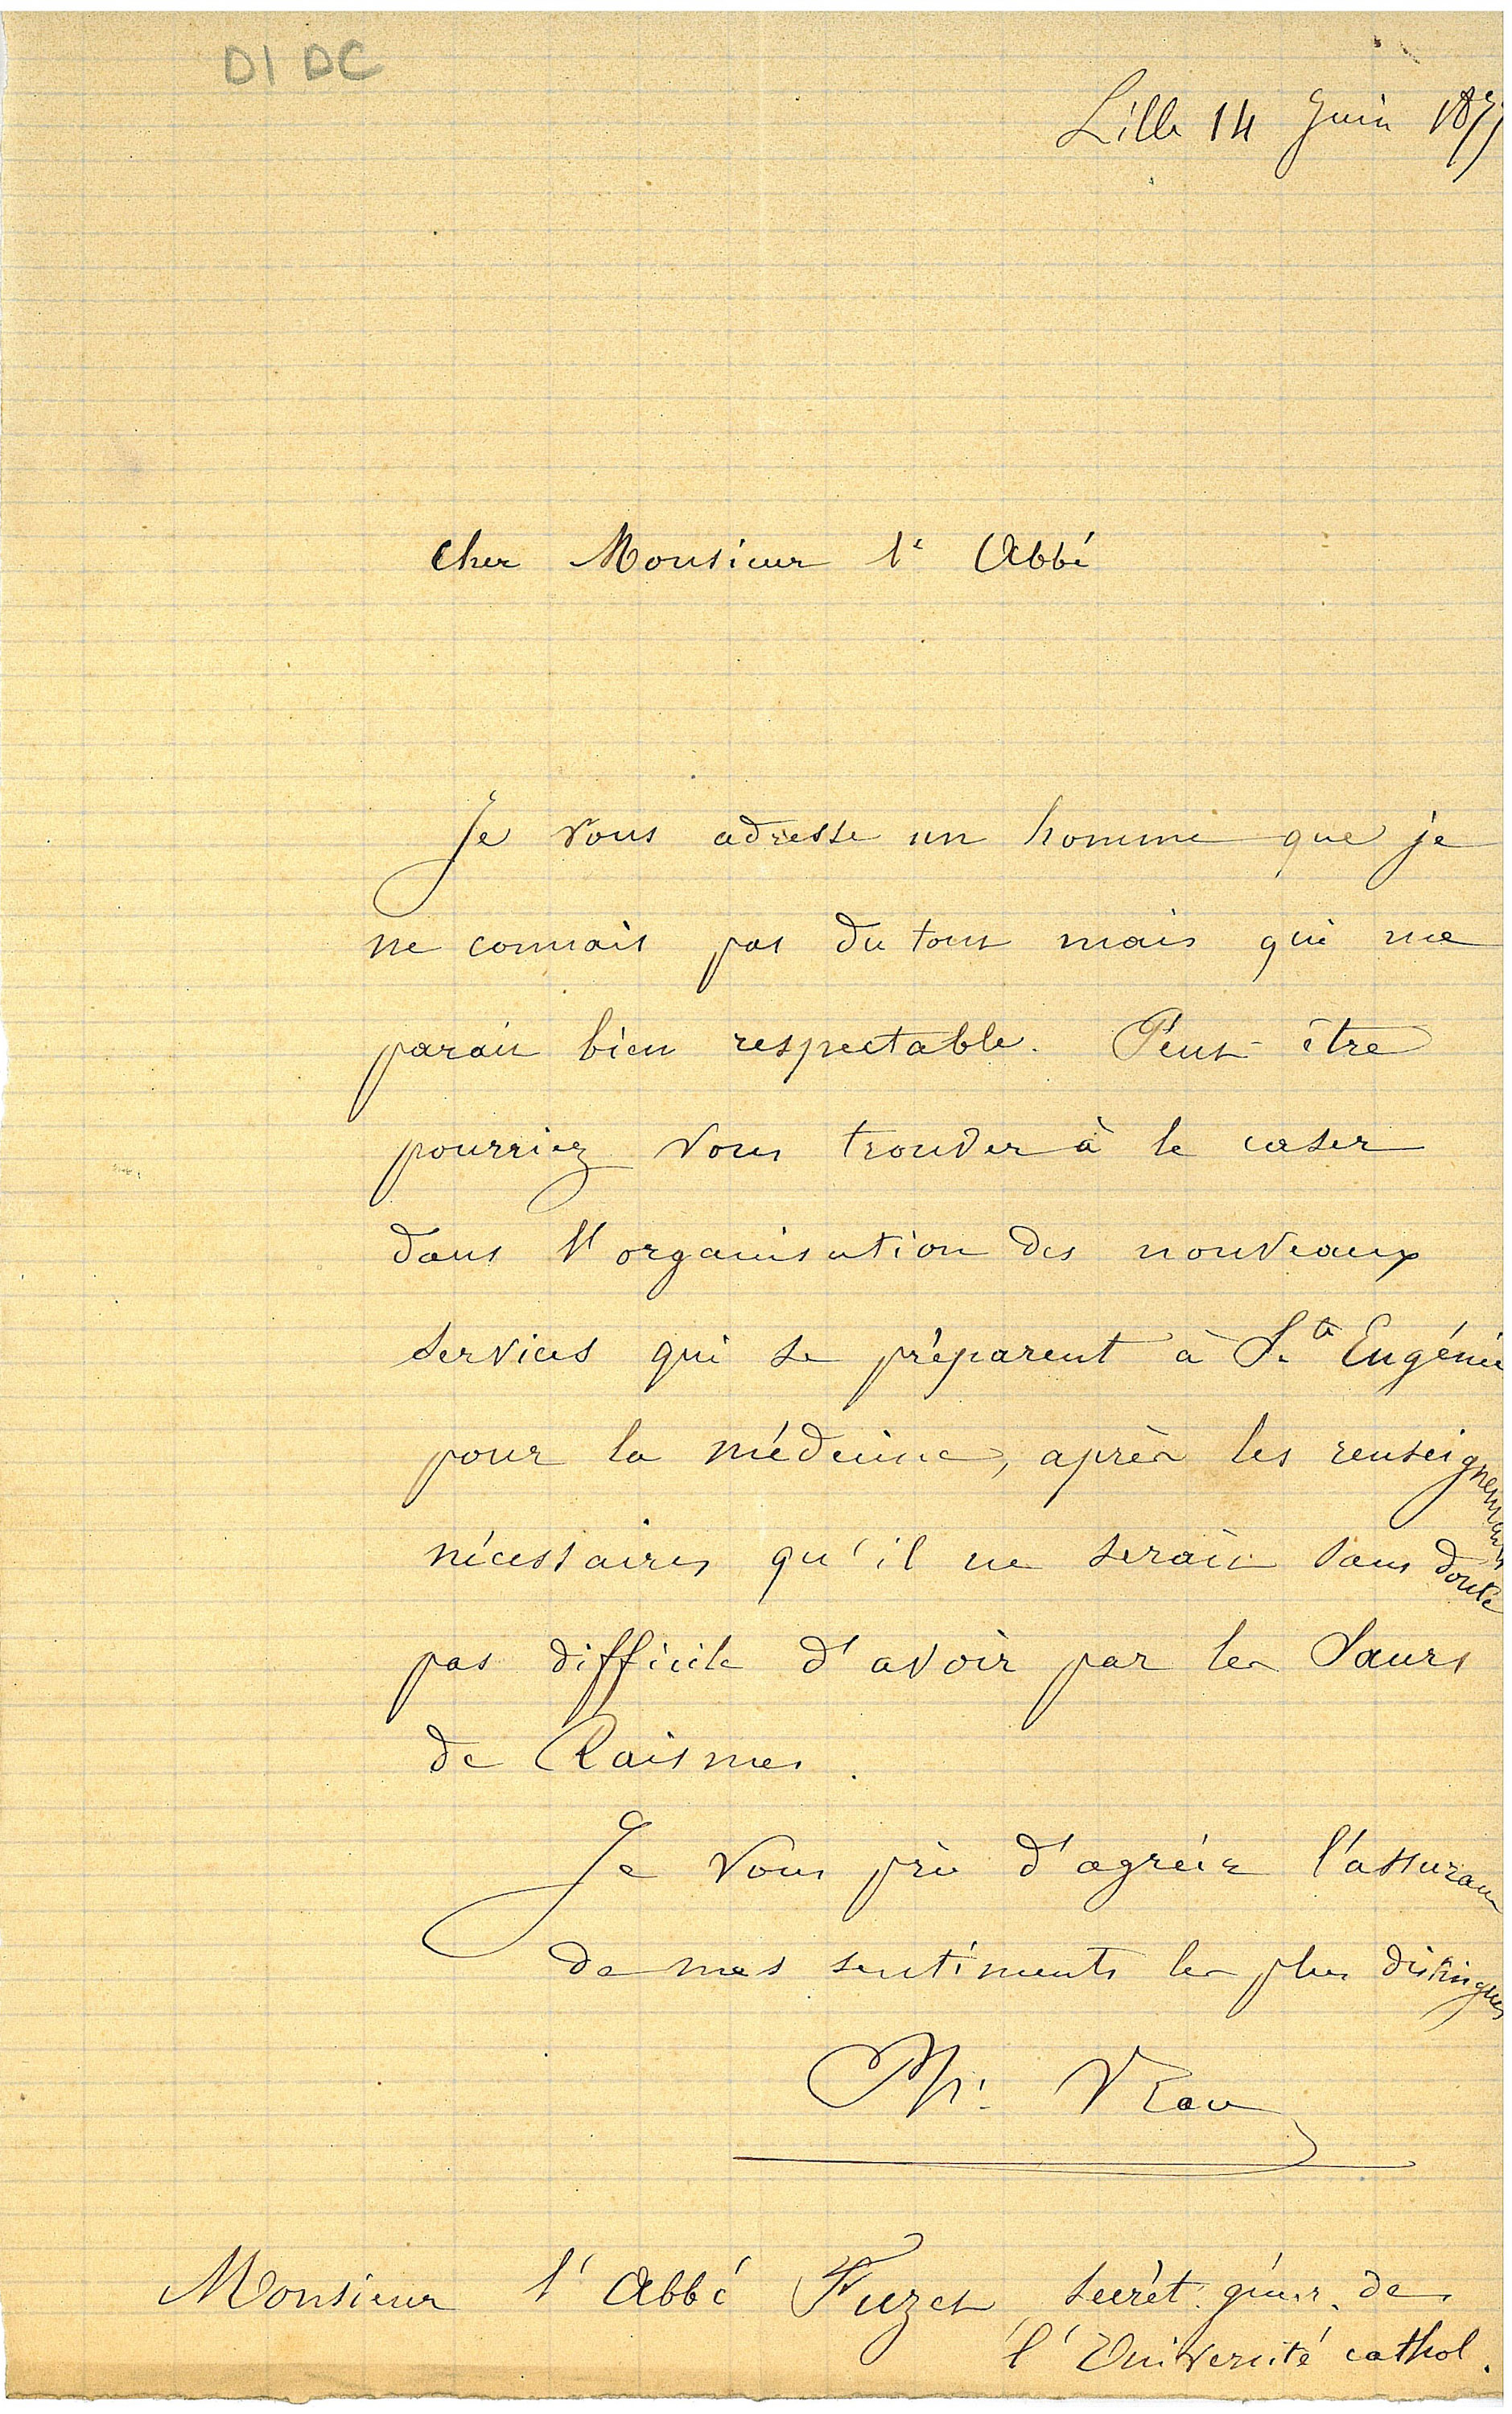 D1 DC
Lille 14 Juin 187
Cher Monsieur l'Abbé
Je vous adresse un homme que je
ne connais pas du tout mais qui me
parait bien respectable. Peut-être
pourriez vous trouver à le caser
dans l'organisation des nouveaux
services qui se préparent à Ste Eugénie
pour la médecine, après les renseignements
nécessaires qu'il ne serait sans doute
pas difficile d'avoir par les Sœurs
de Raismes.
Je vous prie d'agréer l'assurance
de mes sentiments les plus distingués
Ph. Vrau
Monsieur l'Abbé Fuzet secrét. génér. de
l'Université cathol.